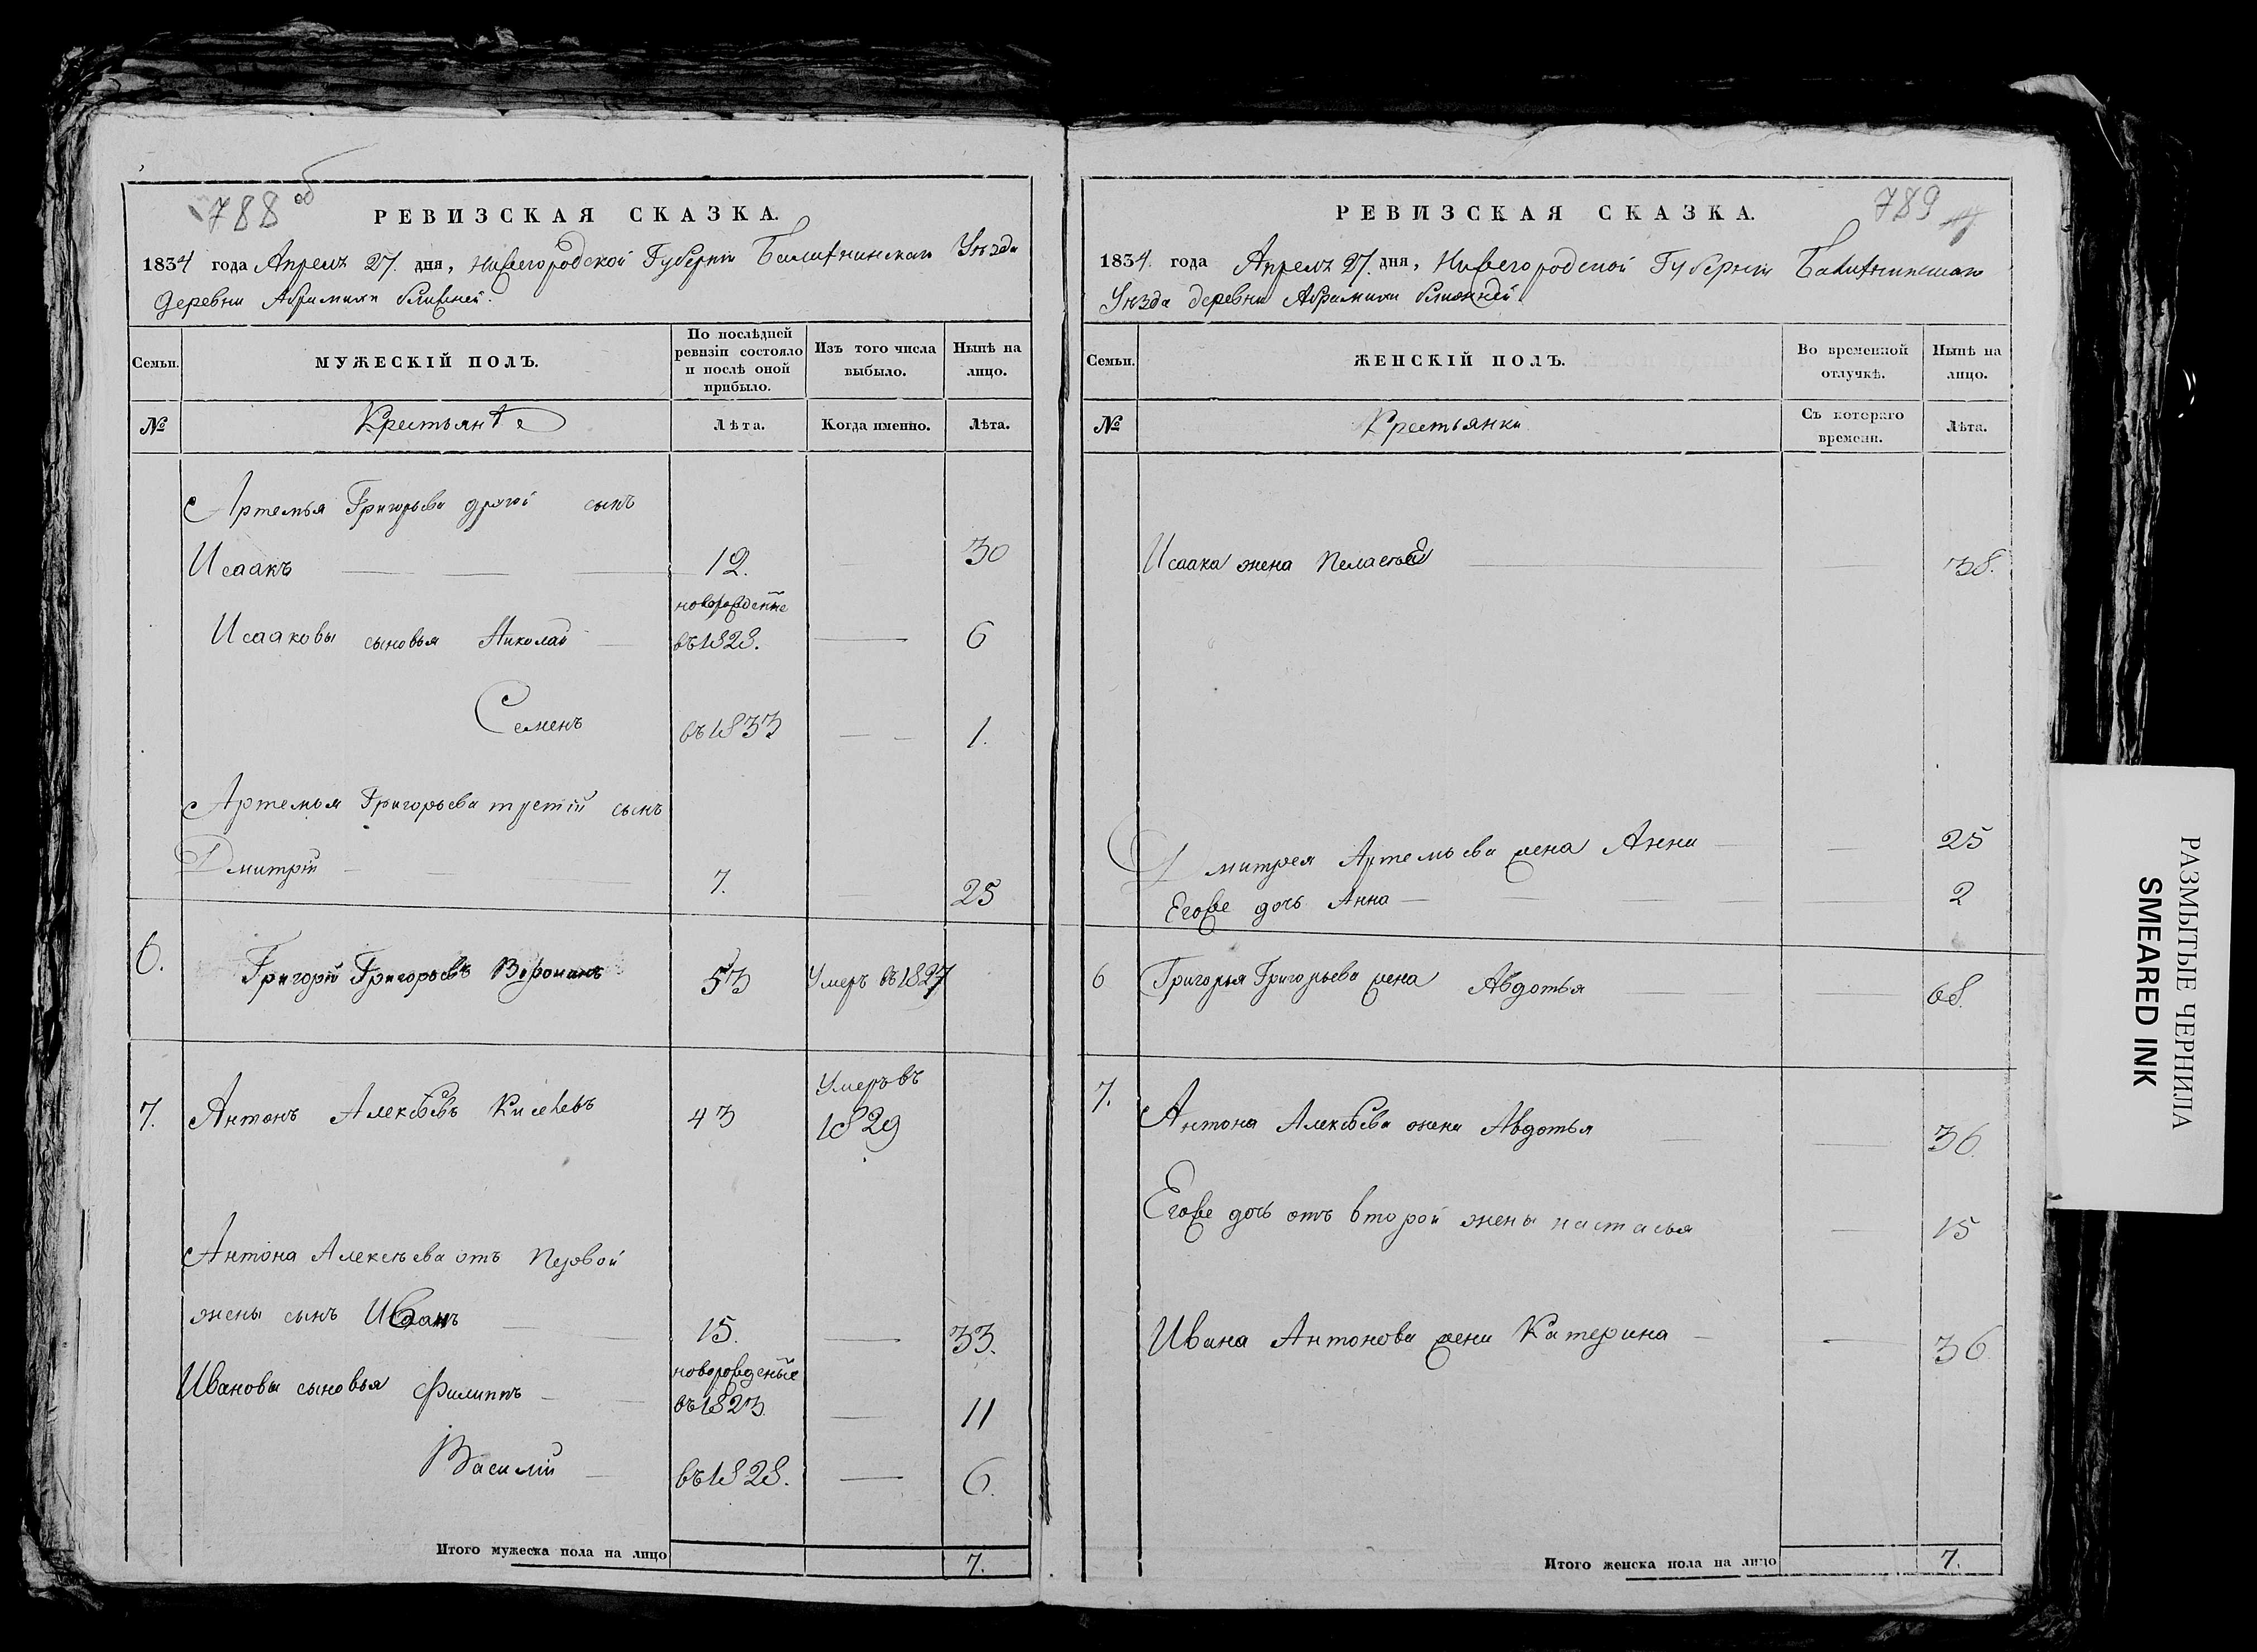 788 об
РЕВИЗСКАЯ СКАЗКА.
1834 года Апреля 27. дня, Нижегородской Губернии Балахнинскаго Уѣзда
Деревни Абрамихи ближней.
Семьи.
МУЖЕСКІЙ ПОЛЪ.
По послѣдней ревизіи состояло и послѣ оной прибыло.
Изъ того числа выбыло.
Нынѣ на лицо.
№
Крестьяне
Лѣта.
Когда именно.
Лѣта.
Артемья Григорьева другой сынъ
Исаакъ 12. 30
новорожденные
Исааковы сыновья Николай въ 1828. 6
Семенъ въ 1833 1.
Артемья Григорьева третій сынъ
Дмитрій 7. 25
6. Григорій Григорьевъ 53 Умеръ въ 1827
7. Антонъ Алексѣевъ Киселевъ 43 Умеръ въ
1829
Антона Алексѣева отъ первой
жены сынъ Иванъ 15. 33.
новорожденные
Ивановы сыновья Филиппъ въ 1823 11
Василій въ 1828. 6.
Итого мужеска пола на лицо 7.
789
РЕВИЗСКАЯ СКАЗКА.
1834 года Апреля 27. дня, Нижегородской Губернии Балахнинскаго
Уѣзда деревни Абрамихи ближней
Семьи.
ЖЕНСКІЙ ПОЛЪ.
Во временной отлучкѣ.
Нынѣ на лицо.
№
Крестьянки
Съ котораго времени.
Лѣта.
Исаака жена Пелагея 38.
Дмитрея Артемьева жена Анна 25
Егоже дочь Анна 2
6 Григорья Григорьева жена Авдотья 68.
7. Антона Алексѣева жена Авдотья 36.
Егоже дочь отъ второй жены настасья 15
Ивана Антонова жена Катерина 36.
Итого женска пола на лицо 7.
РАЗМЫТЫЕ ЧЕРНИЛА
SMEARED INK